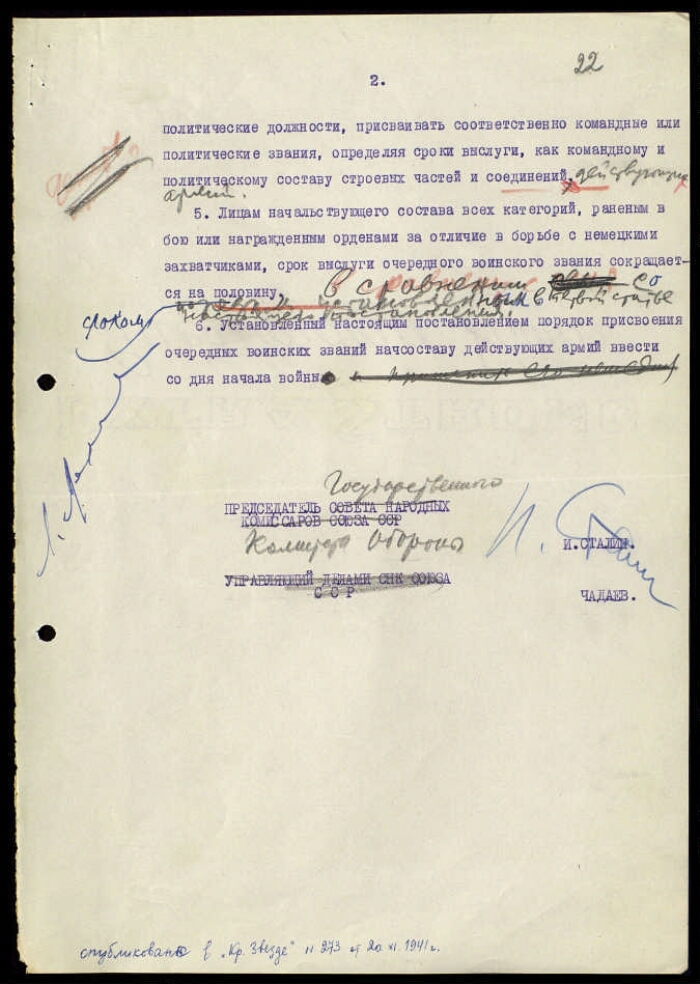 22
2.
политические должности, присваивать соответственно командные или
политические звания, определяя сроки выслуги, как командному и
политическому составу строевых частей и соединений, действующих
армий.
5. Лицам начальствующего состава всех категорий, раненым в
бою или награжденным орденами за отличие в борьбе с немецкими
захватчиками, срок выслуги очередного воинского звания сокращает-
ся на половину
в сравнении со
сроком, установленным в первой статье
настоящего постановления.
6. Установленный настоящим постановлением порядок присвоения
очередных воинских званий начсоставу действующих армий ввести
со дня начала войны.
Государственного
ПРЕДСЕДАТЕЛЬ СОВЕТА НАРОДНЫХ
КОМИССАРОВ СОЮЗА ССР
Комитета Обороны
И. Сталин
И.СТАЛИН.
УПРАВЛЯЮЩИЙ ДЕЛАМИ СНК СОЮЗА
ССР
ЧАДАЕВ.
опубликовано в „Кр. Звезде" N 273 от 20 XI. 1941 г.